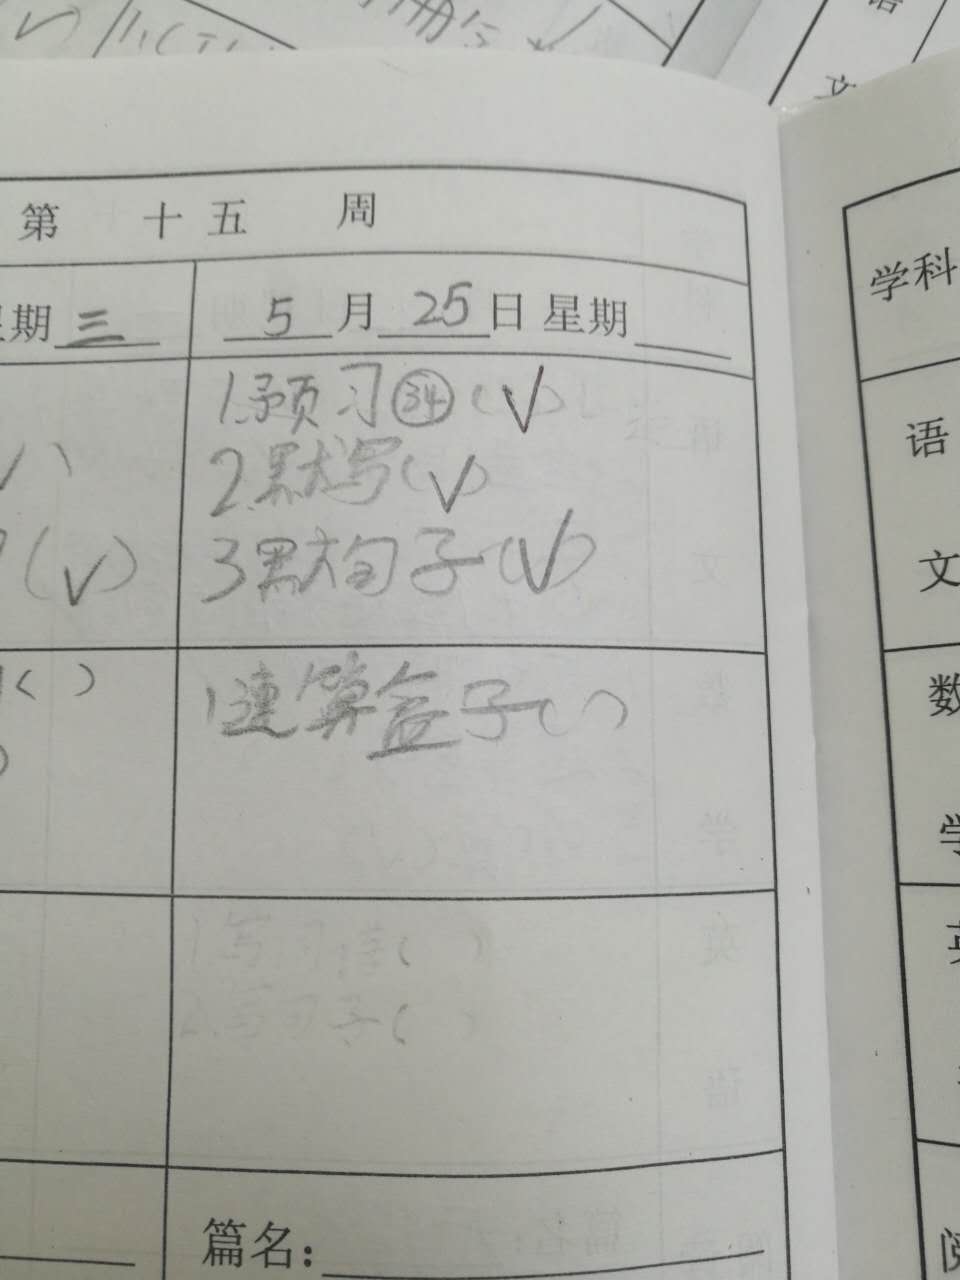 第 十五 周
期 三
5 月 25 日 星期
1.预习㉞( √ )
2.默写( √ )
3默句子( √ )
( √ )
1速算盒子( )
( )
1.写习
2.写句子( )
篇名:
学科
语
文
数
学
英